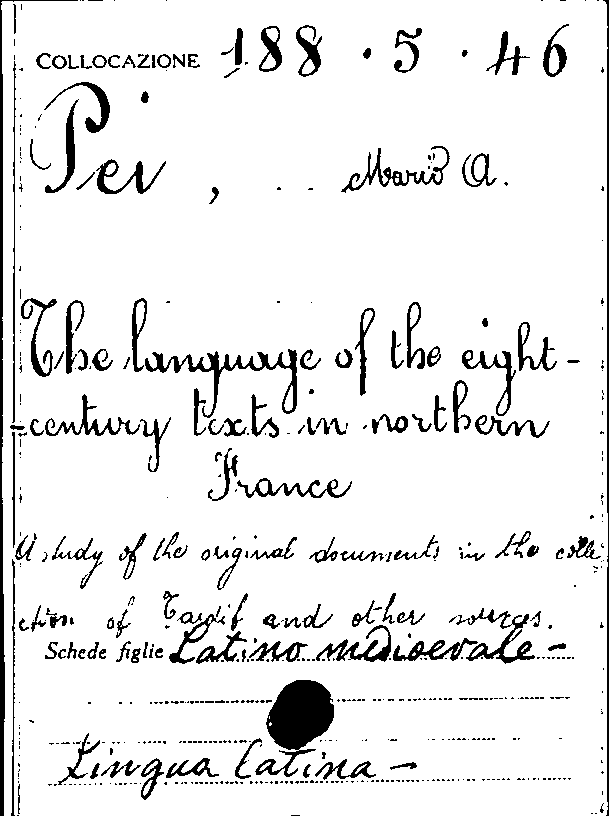 COLLOCAZIONE 188 · 5 · 46
Pei, Mario A.
The language of the eight-
-century texts in northern
France
A study of the original documents in the colle
ction of Tardif and other sources.
Schede figlie Latino medioevale -
Lingua latina -